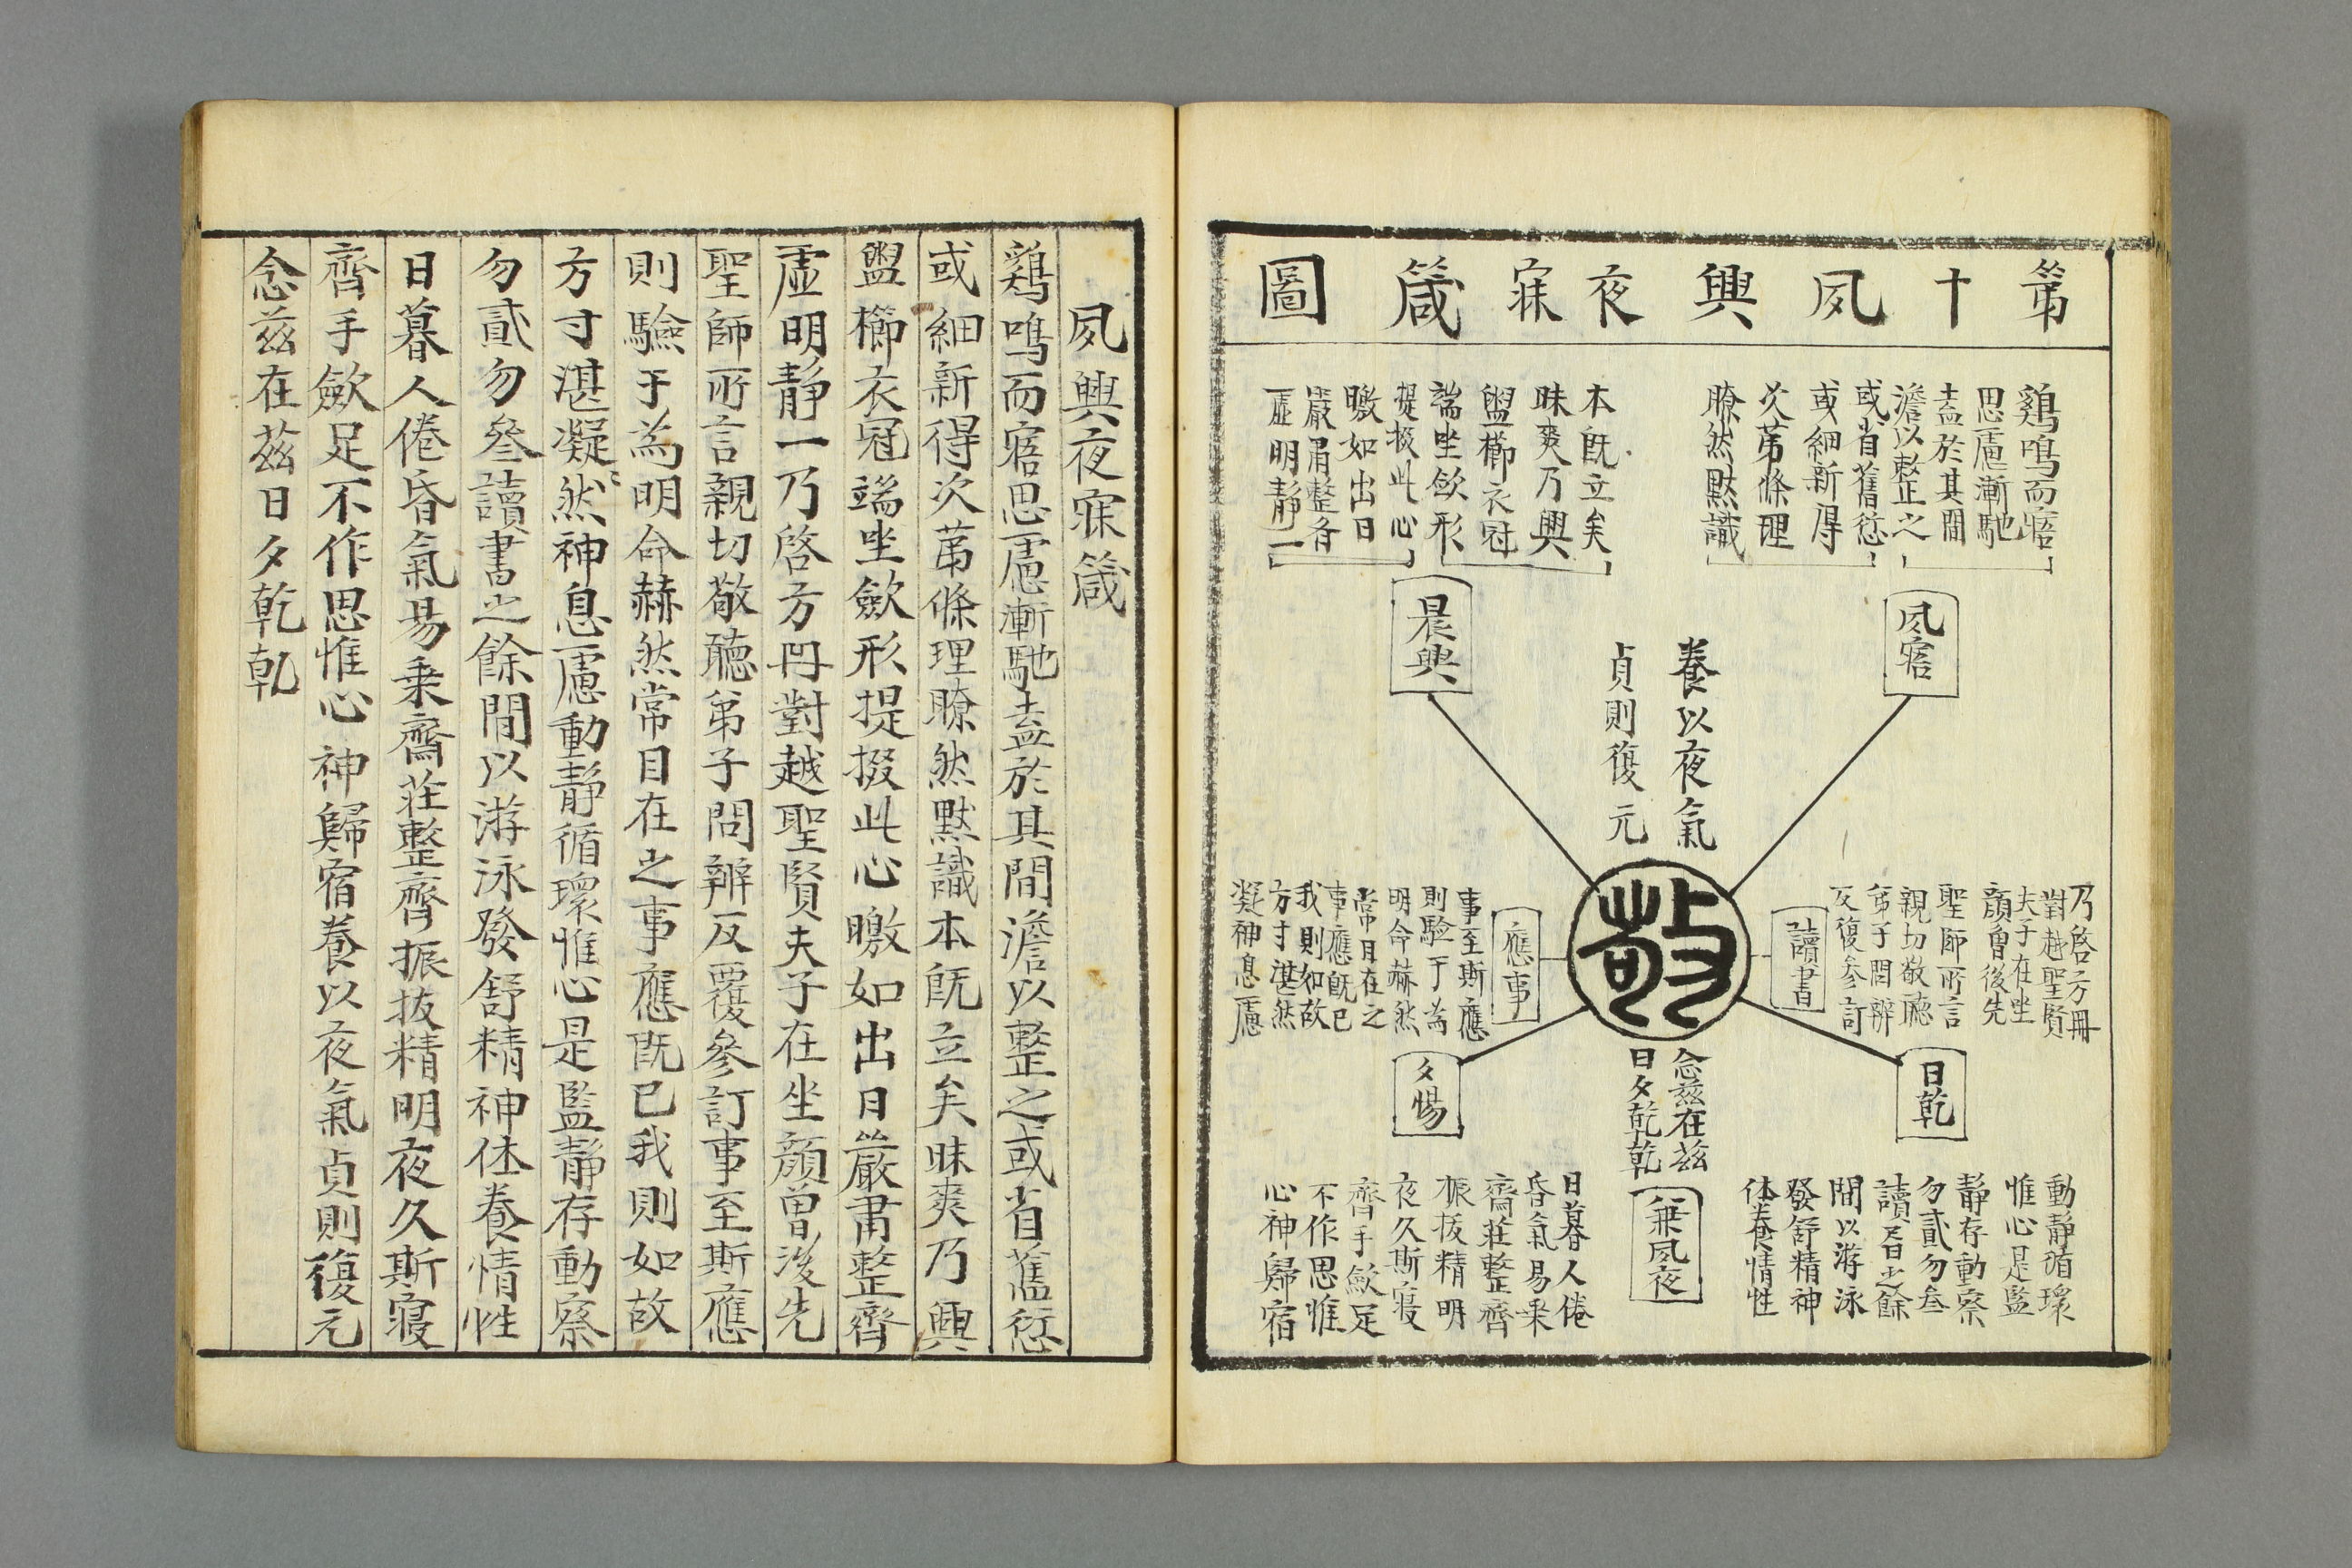 第十夙興夜寐箴圖
鷄鳴而寤
思慮漸馳
盍於其間
澹以整之
或省舊愆
或細新得
次第條理
瞭然默識
夙寤
本旣立矣
昧爽乃興
盥櫛衣冠
端坐斂形
提掇此心
皦如出日
嚴肅整齊
虛明靜一
晨興
養以夜氣
貞則復元
敬
乃啓方冊
對越聖賢
夫子在坐
顔曾後先
聖師所言
親切敬聽
弟子問辨
反復參訂
讀書
應事
事至斯應
則驗于爲
明命赫然
常目在之
事應旣已
我則如故
方寸湛然
凝神息慮
日乾
動靜循環
惟心是監
靜存動察
勿貳勿參
讀書之餘
間以游泳
發舒精神
休養情性
念茲在茲
日夕乾乾
兼夙夜
夕惕
日暮人倦
昏氣易乘
齋莊整齊
振拔精明
夜久斯寢
齊手斂足
不作思惟
心神歸宿
夙興夜寐箴
鷄鳴而寤思慮漸馳盍於其間澹以整之或省舊愆
或細新得次第條理瞭然默識本旣立矣昧爽乃興
盥櫛衣冠端坐斂形提掇此心皦如出日嚴肅整齊
虛明靜一乃啓方冊對越聖賢夫子在坐顔曾後先
聖師所言親切敬聽弟子問辨反覆參訂事至斯應
則驗于爲明命赫然常目在之事應旣已我則如故
方寸湛凝然神息慮動靜循環惟心是監靜存動察
勿貳勿參讀書之餘間以游泳發舒精神休養情性
日暮人倦昏氣易乘齋莊整齊振拔精明夜久斯寢
齊手斂足不作思惟心神歸宿養以夜氣貞則復元
念茲在茲日夕乾乾